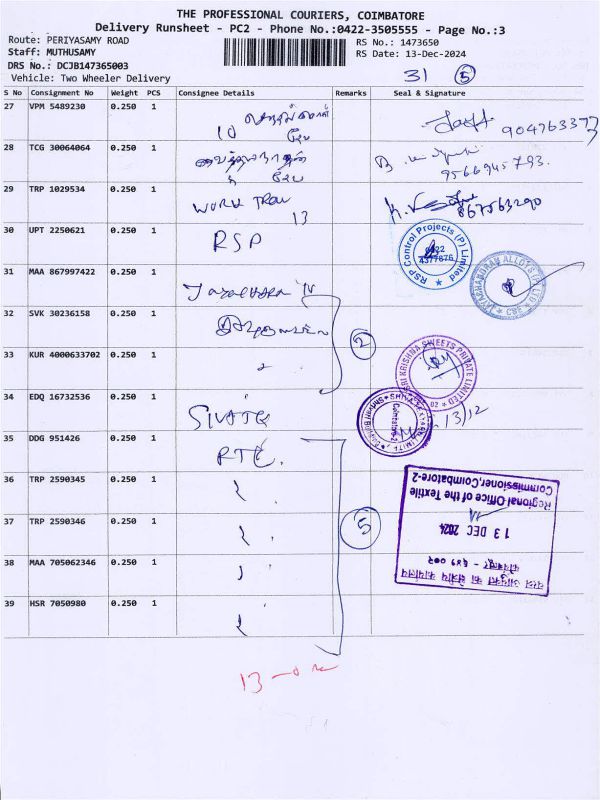 THE PROFESSIONAL COURIERS, COIMBATORE
Delivery Runsheet - PC2 - Phone No.:0422-3505555 - Page No.:3
Route: PERIYASAMY ROAD
RS No.: 1473650
Staff: MUTHUSAMY
RS Date: 13-Dec-2024
DRS No.: DCJB147365003
Vehicle: Two Wheeler Delivery
31 5
S No Consignment No Weight PCS Consignee Details Remarks Seal & Signature
27 VPM 5489230 0.250 1
10
28 TCG 30064064 0.250 1
9566945793.
29 TRP 1029534 0.250 1
WORK
13
30 UPT 2250621 0.250 1 RSP
RSP Control Projects (P) Limited
0422
4377876
31 MAA 867997422 0.250 1
JAYACHANDRAN ALLOYS (P) LTD
CBE
32 SVK 30236158 0.250 1
2
33 KUR 4000633702 0.250 1
SRI KRISHNA SWEETS PRIVATE LIMITED
34 EDQ 16732536 0.250 1
13/12
Coimbatore-2
35 DDG 951426 0.250 1
36 TRP 2590345 0.250 1
37 TRP 2590346 0.250 1
5
38 MAA 705062346 0.250 1
39 HSR 7050980 0.250 1
वस्त्र आयुक्त का क्षेत्रीय कार्यालय
कोयम्बत्तूर - ६४१ ००२
13 DEC 2024
Regional Office of the Textile
Commissioner, Coimbatore-2
13